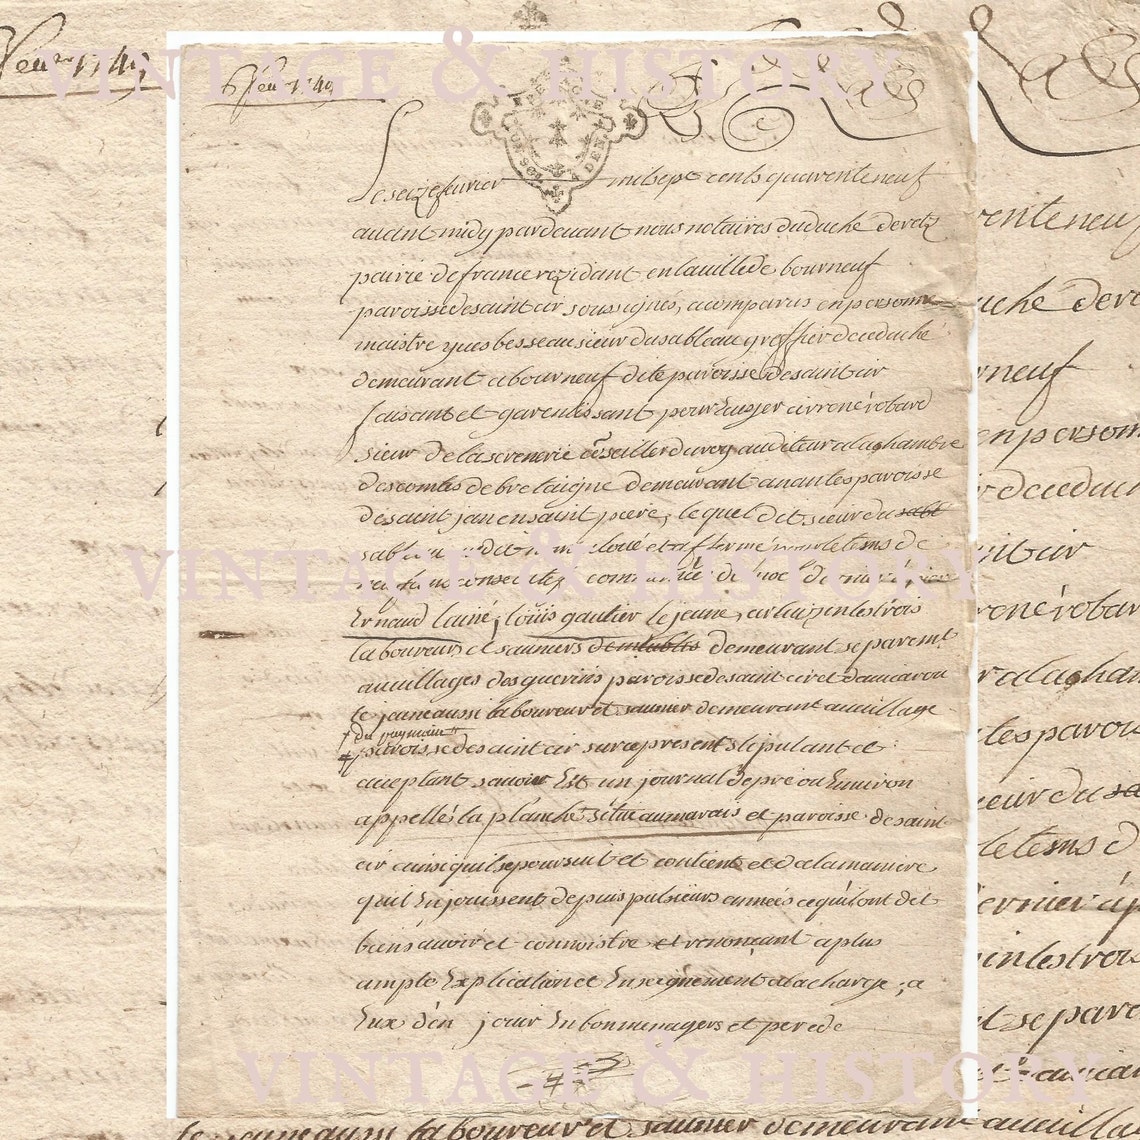 VINTAGE & HISTORY
6 feu. 1749
BRETAGNE
UN SOL
DEN.
Le seize feurier mil sept cents quarente neuf
auant midy par deuant nous notaires du duché de retz
pairie de france rezidant en la uille de bourneuf
paroisse de saint cir soussignés, a comparu en personne
maistre yues besseau sieur du sableau greffier de ce duché
demeurant a bourneuf dite paroisse de saint cir
faisant et garentissant pour
sieur de la conseiller du roy auditeur a la chambre
des comtes de bretaigne demeurant a nantes paroisse
de saint jan en saint, lequel dit sieur du sabl
dit loué et affermé pour le tems de
consecutez de noel dernier
Ernaud l'ainé, louis gautier le jeune,
laboureurs et sauniers demeurant separemt
au uillages des guerins paroisse de saint cir et
le jeune aussi laboureur et saunier demeurant au uillage
paroisse de saint cir sur ce present stipulant et
aceptant sauoir Est un journal de pré ou Enuiron
appellé la planche situé au marais et paroisse de saint
cir ainsi qu'il se poursuit et contient et de la maniere
qu'il En jouissent depuis pulsieurs années ce qu'il ont dit
bien sauoir et connoistre et renonceant a plus
ample Explication et Enseignement a la charge, a
Eux d'en jouir En bon menagers et pere de
VINTAGE & HISTORY
VINTAGE & HISTORY